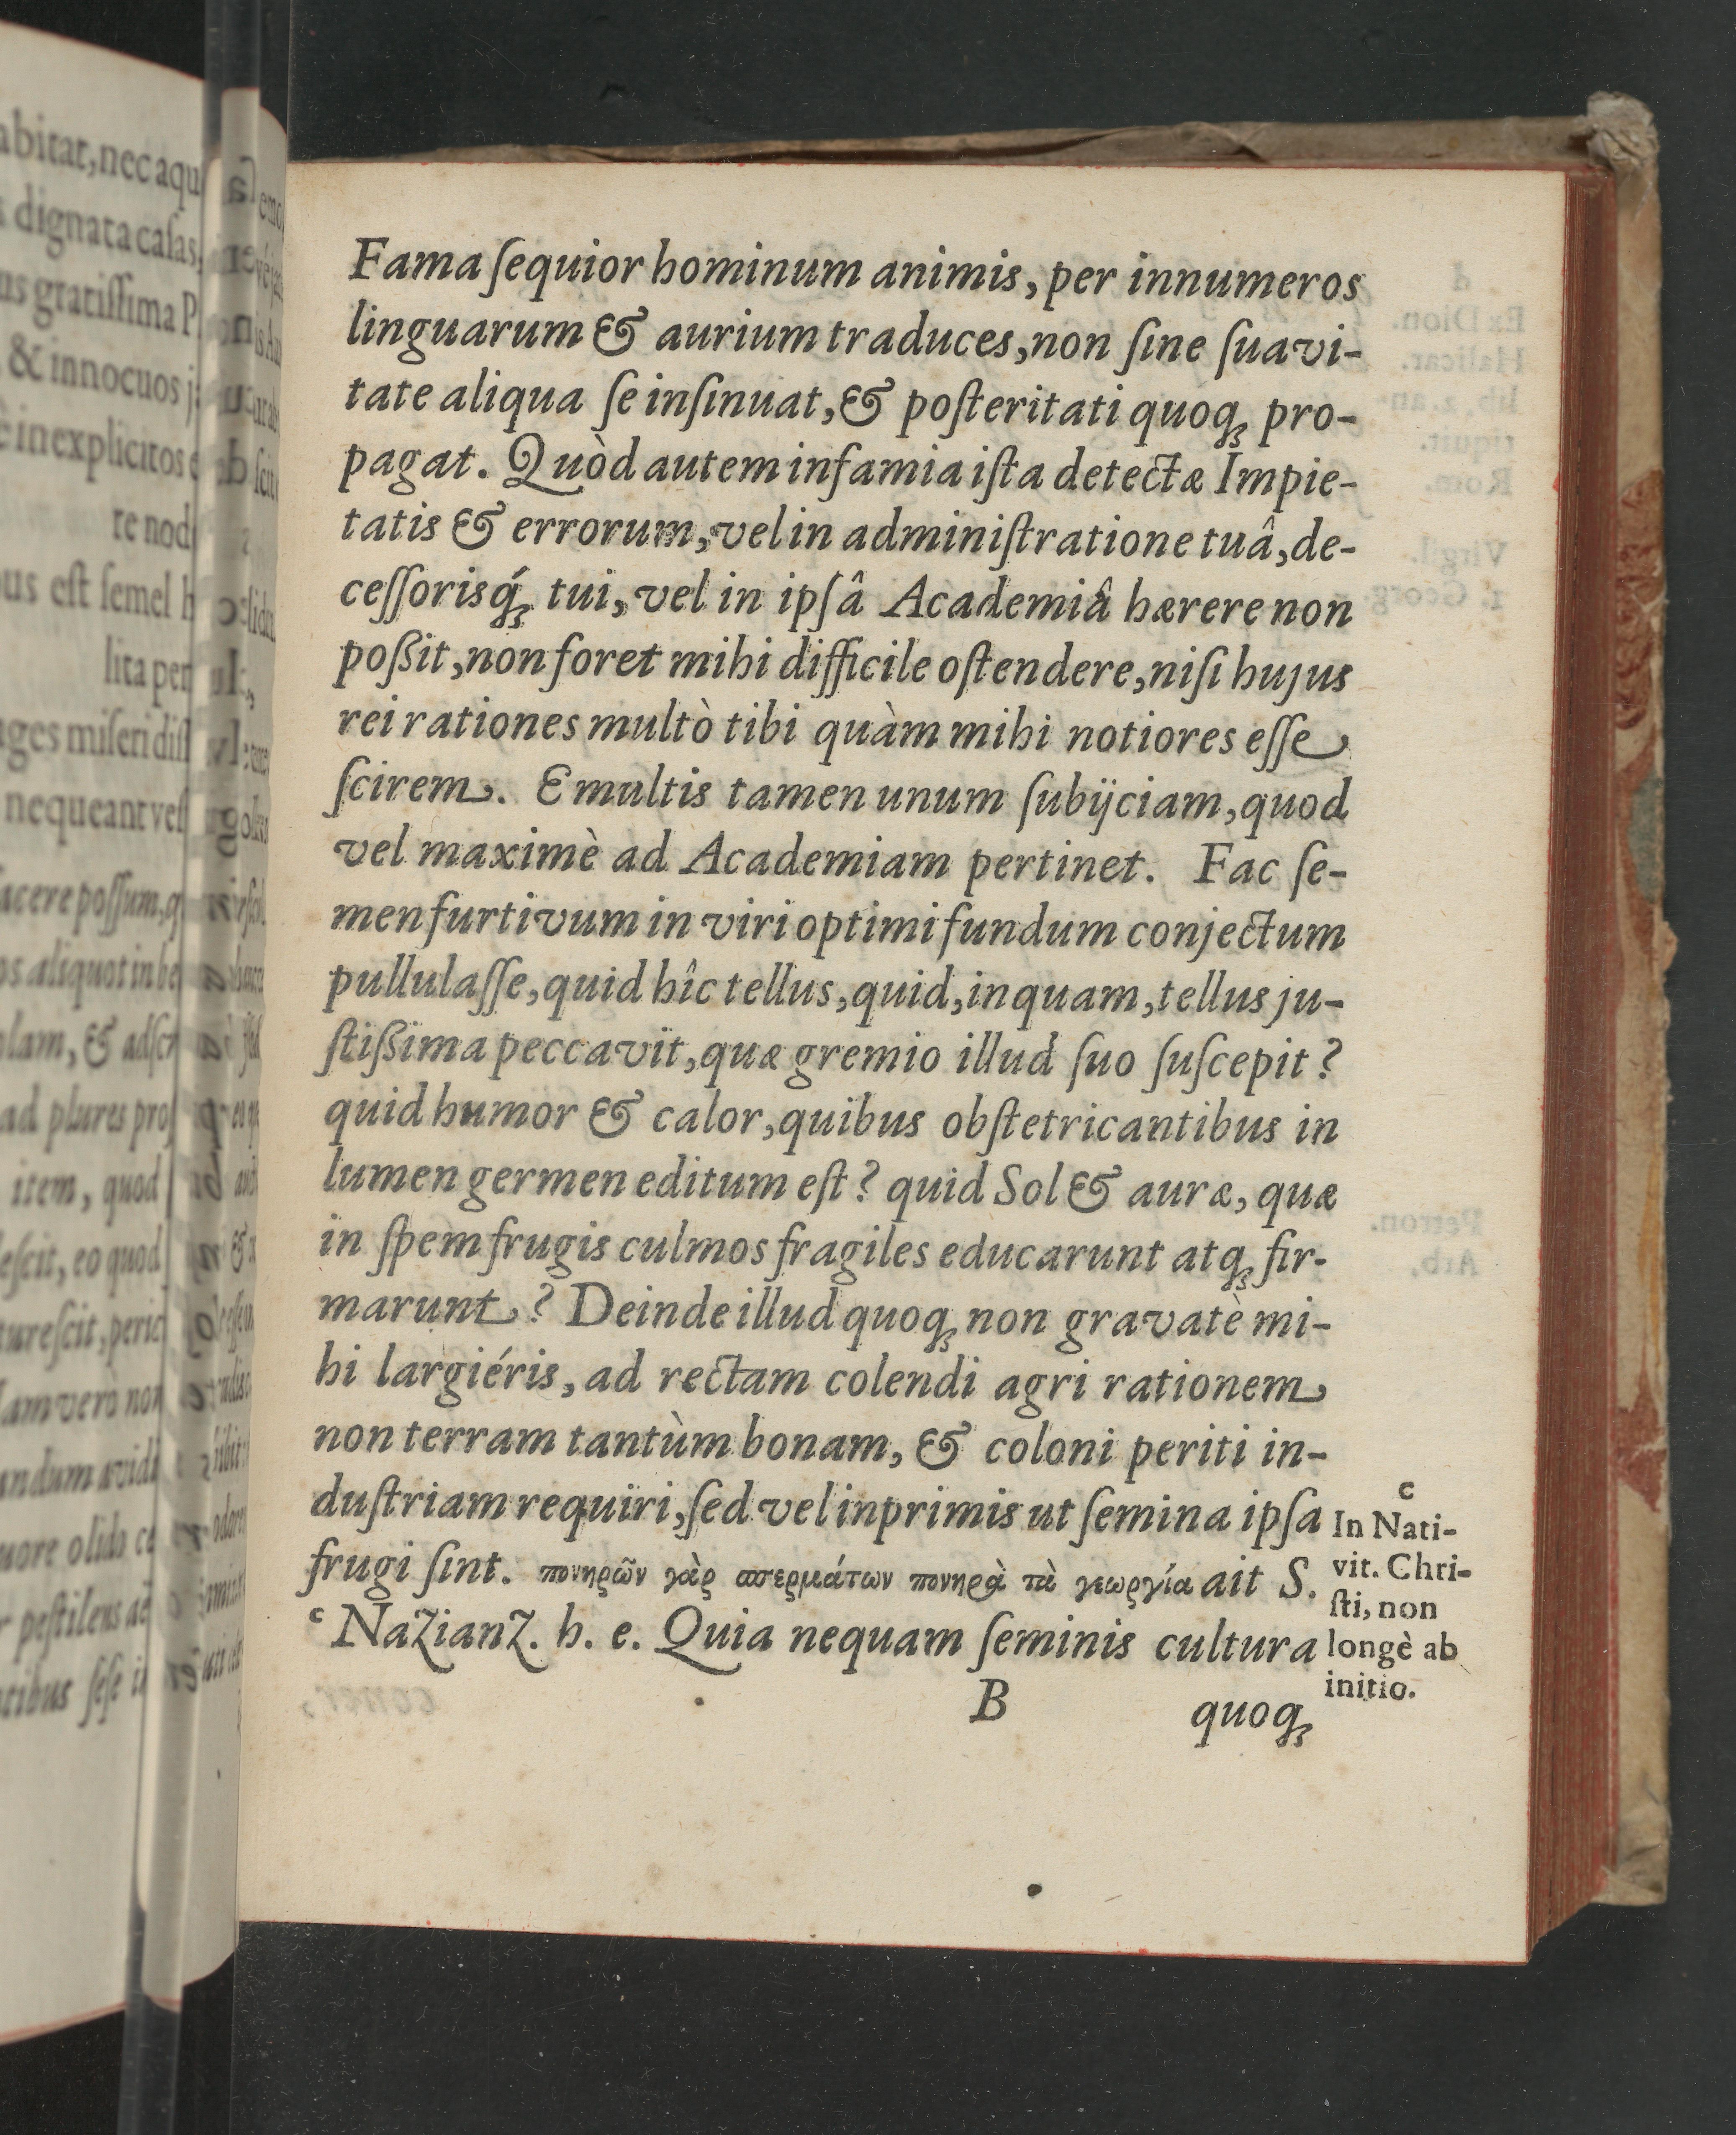 Fama ſequior hominum animis, per innumeros
linguarum & aurium traduces, non ſine ſuavi-
tate aliqua ſe inſinuat, & poſteritati quoq; pro-
pagat. Quòd autem infamia iſta detectæ Impie-
tatis & errorum, vel in adminiſtratione tuâ, de-
ceſſorisq́; tui, vel in ipſâ Academiâ hærere non
poßit, non foret mihi difficile oſtendere, niſi hujus
rei rationes multò tibi quàm mihi notiores eſſe
ſcirem. E multis tamen unum ſubijciam, quod
vel maximè ad Academiam pertinet. Fac ſe-
men furtivum in viri optimi fundum conjectum
pullulaſſe, quid hîc tellus, quid, inquam, tellus ju-
ſtißima peccavit, quæ gremio illud ſuo ſuſcepit?
quid humor & calor, quibus obſtetricantibus in
lumen germen editum eſt? quid Sol & auræ, quæ
in ſpem frugis culmos fragiles educarunt atq; fir-
marunt? Deinde illud quoq; non gravatè mi-
hi largiéris, ad rectam colendi agri rationem
non terram tantùm bonam, & coloni periti in-
duſtriam requiri, ſed vel inprimis ut ſemina ipſa
frugi ſint. πονηρῶν γὰρ σπερμάτων πονηρὰ τὰ γεωργία ait S.
c Nazianz. h. e. Quia nequam ſeminis cultura
B
quoq;
c
In Nati-
vit. Chri-
ſti, non
longè ab
initio.
abitat, nec aqu
dignata caſas,
us gratiſſima P
& innocuos
inexplicitos
re nod
us eſt ſemel h
lita per
nequeant veſ
acere poſſum, q
os aliquot in be
ad plures pro
item, quod
eſcit, eo quod
tureſcit, peric